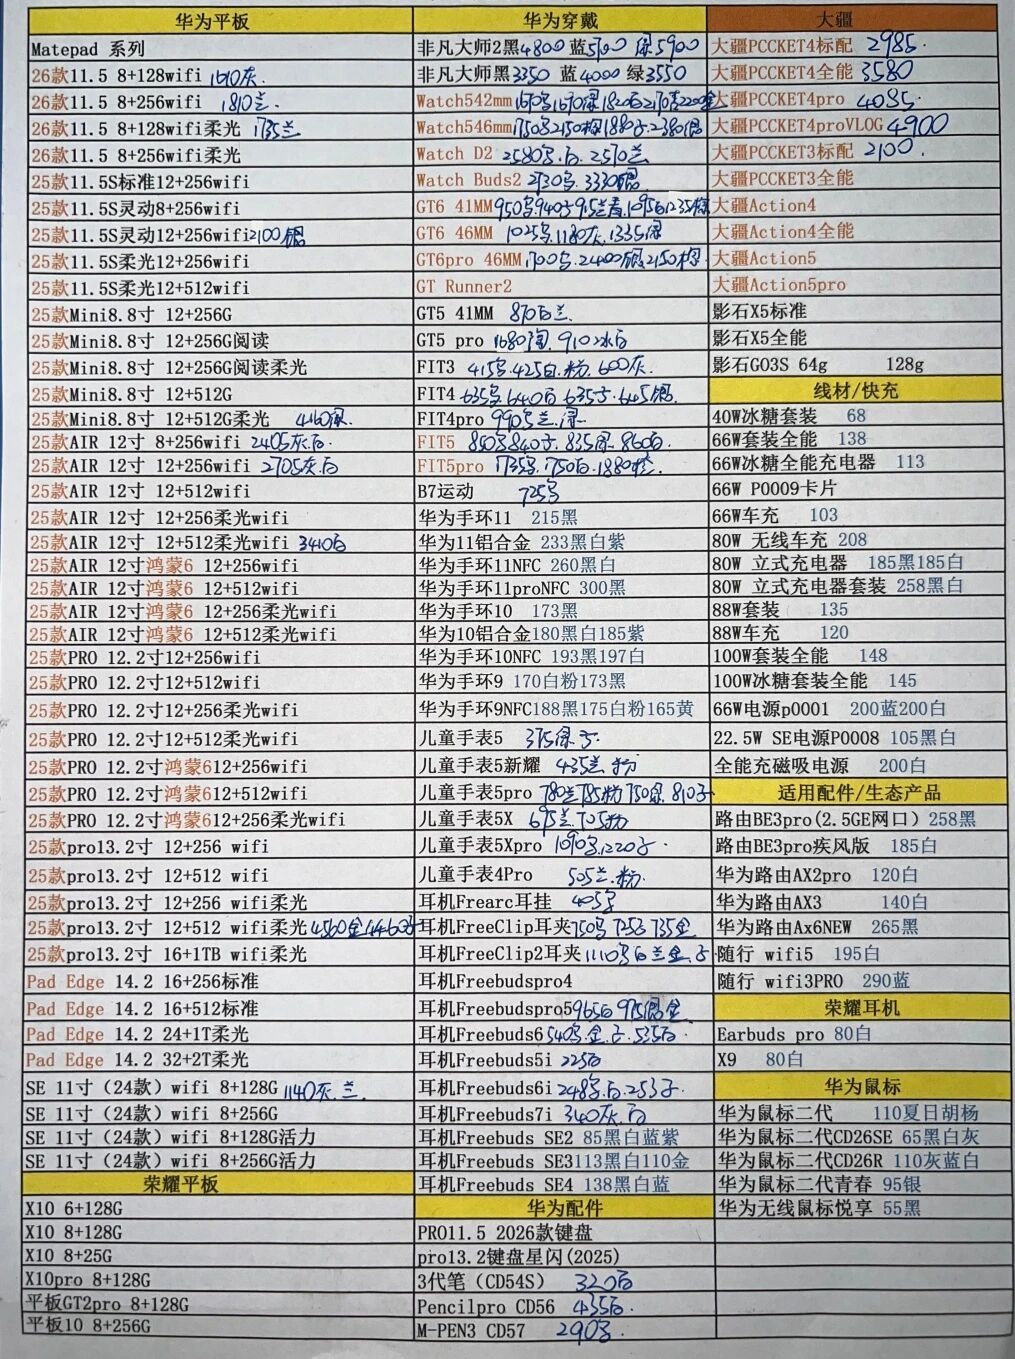 华为平板
Matepad 系列
26款11.5 8+128wifi 1610灰.
26款11.5 8+256wifi 1810兰.
26款11.5 8+128wifi柔光 1735兰
26款11.5 8+256wifi柔光
25款11.5S标准12+256wifi
25款11.5S灵动8+256wifi
25款11.5S灵动12+256wifi2100银
25款11.5S柔光12+256wifi
25款11.5S柔光12+512wifi
25款Mini8.8寸 12+256G
25款Mini8.8寸 12+256G阅读
25款Mini8.8寸 12+256G阅读柔光
25款Mini8.8寸 12+512G
25款Mini8.8寸 12+512G柔光 4160绿.
25款AIR 12寸 8+256wifi 2405灰白.
25款AIR 12寸 12+256wifi 2705灰白
25款AIR 12寸 12+512wifi
25款AIR 12寸 12+256柔光wifi
25款AIR 12寸 12+512柔光wifi 3410白
25款AIR 12寸鸿蒙6 12+256wifi
25款AIR 12寸鸿蒙6 12+512wifi
25款AIR 12寸鸿蒙6 12+256柔光wifi
25款AIR 12寸鸿蒙6 12+512柔光wifi
25款PRO 12.2寸12+256wifi
25款PRO 12.2寸12+512wifi
25款PRO 12.2寸12+256柔光wifi
25款PRO 12.2寸12+512柔光wifi
25款PRO 12.2寸鸿蒙612+256wifi
25款PRO 12.2寸鸿蒙612+512wifi
25款PRO 12.2寸鸿蒙612+256柔光wifi
25款pro13.2寸 12+256 wifi
25款pro13.2寸 12+512 wifi
25款pro13.2寸 12+256 wifi柔光
25款pro13.2寸 12+512 wifi柔光4560金4460
25款pro13.2寸 16+1TB wifi柔光
Pad Edge 14.2 16+256标准
Pad Edge 14.2 16+512标准
Pad Edge 14.2 24+1T柔光
Pad Edge 14.2 32+2T柔光
SE 11寸（24款）wifi 8+128G 1140灰.兰.
SE 11寸（24款）wifi 8+256G
SE 11寸（24款）wifi 8+128G活力
SE 11寸（24款）wifi 8+256G活力
荣耀平板
X10 6+128G
X10 8+128G
X10 8+25G
X10pro 8+128G
平板GT2pro 8+128G
平板10 8+256G
华为穿戴
非凡大师2黑4800 蓝5700 绿5900
非凡大师黑3350 蓝4000 绿3550
Watch542mm 1670 1670绿 1820白2170 2200金
Watch546mm 1750 2150 1880 2380
Watch D2 2580 白.2570兰
Watch Buds2 2930 3330银.
GT6 41MM950 940 915兰 1095白1235棕
GT6 46MM 1025 1180灰.1335绿
GT6pro 46MM1700 2400银2150棕
GT Runner2
GT5 41MM 870白兰.
GT5 pro 1680 910冰白
FIT3 415 425白.粉.600灰.
FIT4 635 640白 635 645银.
FIT4pro 990 兰.绿.
FIT5 850 840 835绿.860白.
FIT5pro 1735 1750白.1880橙.
B7运动 725
华为手环11 215黑
华为11铝合金 233黑白紫
华为手环11NFC 260黑白
华为手环11proNFC 300黑
华为手环10 173黑
华为10铝合金180黑白185紫
华为手环10NFC 193黑197白
华为手环9 170白粉173黑
华为手环9NFC188黑175白粉165黄
儿童手表5 375绿
儿童手表5新耀 435兰.粉
儿童手表5pro 780兰785粉750绿.810
儿童手表5X 695兰.705粉
儿童手表5Xpro 1090 1220
儿童手表4Pro 505兰.粉.
耳机Frearc耳挂 405
耳机FreeClip耳夹750 725 735金
耳机FreeClip2耳夹1110 白兰金.
耳机Freebudspro4
耳机Freebudspro5965白 975银金.
耳机Freebuds6540 金. 535白.
耳机Freebuds5i 225白
耳机Freebuds6i 248 白.253
耳机Freebuds7i 340灰.白
耳机Freebuds SE2 85黑白蓝紫
耳机Freebuds SE3113黑白110金
耳机Freebuds SE4 138黑白蓝
华为配件
PRO11.5 2026款键盘
pro13.2键盘星闪(2025)
3代笔（CD54S） 320白
Pencilpro CD56 435白.
M-PEN3 CD57 290
大疆
大疆PCCKET4标配 2985.
大疆PCCKET4全能 3580
大疆PCCKET4pro 4085.
大疆PCCKET4proVLOG4900
大疆PCCKET3标配 2100.
大疆PCCKET3全能
大疆Action4
大疆Action4全能
大疆Action5
大疆Action5pro
影石X5标准
影石X5全能
影石GO3S 64g 128g
线材/快充
40W冰糖套装 68
66W套装全能 138
66W冰糖全能充电器 113
66W P0009卡片
66W车充 103
80W 无线车充 208
80W 立式充电器 185黑185白
80W 立式充电器套装 258黑白
88W套装 135
88W车充 120
100W套装全能 148
100W冰糖套装全能 145
66W电源p0001 200蓝200白
22.5W SE电源P0008 105黑白
全能充磁吸电源 200白
适用配件/生态产品
路由BE3pro(2.5GE网口）258黑
路由BE3pro疾风版 185白
华为路由AX2pro 120白
华为路由AX3 140白
华为路由Ax6NEW 265黑
随行 wifi5 195白
随行 wifi3PRO 290蓝
荣耀耳机
Earbuds pro 80白
X9 80白
华为鼠标
华为鼠标二代 110夏日胡杨
华为鼠标二代CD26SE 65黑白灰
华为鼠标二代CD26R 110灰蓝白
华为鼠标二代青春 95银
华为无线鼠标悦享 55黑